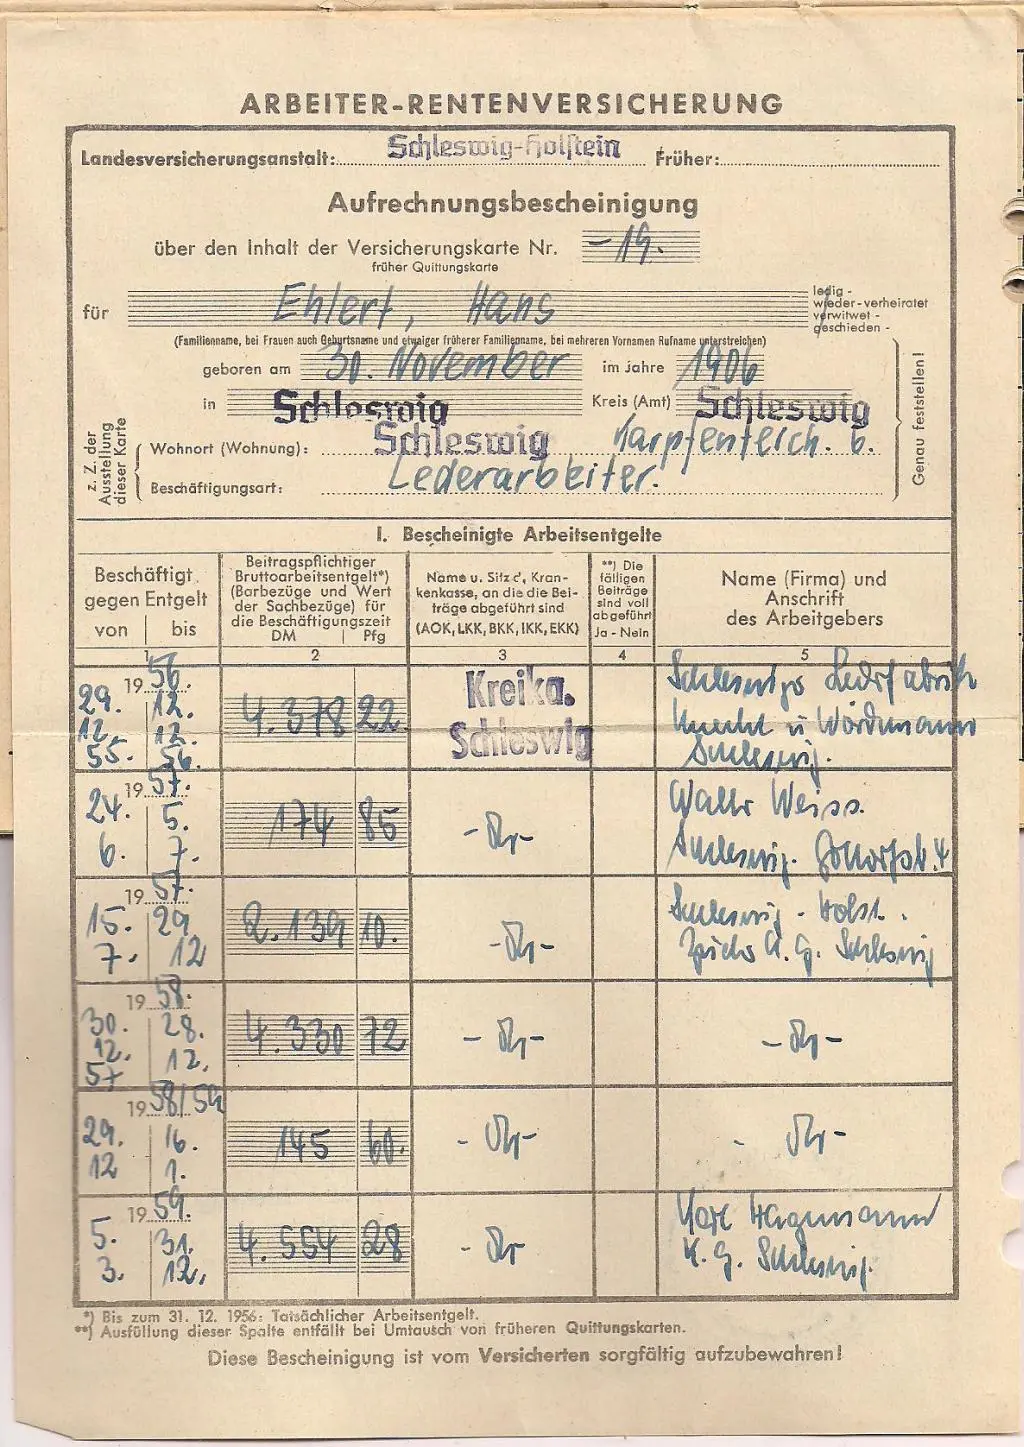 ARBEITER-RENTENVERSICHERUNG
Landesversicherungsanstalt: Schleswig-Holstein Früher:
Aufrechnungsbescheinigung
über den Inhalt der Versicherungskarte Nr. -19.
früher Quittungskarte
für Ehlert, Hans
ledig -
wieder-verheiratet
verwitwet -
geschieden -
(Familienname, bei Frauen auch Geburtsname und etwaiger früherer Familienname, bei mehreren Vornamen Rufname unterstreichen)
geboren am 30. November im Jahre 1906
in Schleswig Kreis (Amt) Schleswig
z. Z. der
Ausstellung
dieser Karte
Wohnort (Wohnung): Schleswig Karpfenteich. 6.
Beschäftigungsart: Lederarbeiter.
Genau feststellen!
I. Bescheinigte Arbeitsentgelte
Beschäftigt
gegen Entgelt
von bis
Beitragspflichtiger
Bruttoarbeitsentgelt*)
(Barbezüge und Wert
der Sachbezüge) für
die Beschäftigungszeit
DM Pfg
Name u. Sitz d. Kran-
kenkasse, an die die Bei-
träge abgeführt sind
(AOK, LKK, BKK, IKK, EKK)
**) Die
fälligen
Beiträge
sind voll
abgeführt
Ja - Nein
Name (Firma) und
Anschrift
des Arbeitgebers
1 2 3 4 5
1956.
29. 12.
12. 12.
55. 56.
4.378 22
Kreika.
Schleswig
Schleswiger Lederfabrik
Knecht u Wördemann
Schleswig.
1957.
24. 5.
6. 7.
174 85
Weiss.
Schleswig.
1957.
15. 29
7. 12
2.139 10.
Schleswig - Holst.
A. G. Schleswig
1958.
30. 28.
12. 12.
57
4.330 72
1958/59
29. 16.
12 1.
145 60.
1959.
5. 31.
3. 12.
4.554 28
Karl Hagemann
K. G. Schleswig.
*) Bis zum 31. 12. 1956: Tatsächlicher Arbeitsentgelt.
**) Ausfüllung dieser Spalte entfällt bei Umtausch von früheren Quittungskarten.
Diese Bescheinigung ist vom Versicherten sorgfältig aufzubewahren!